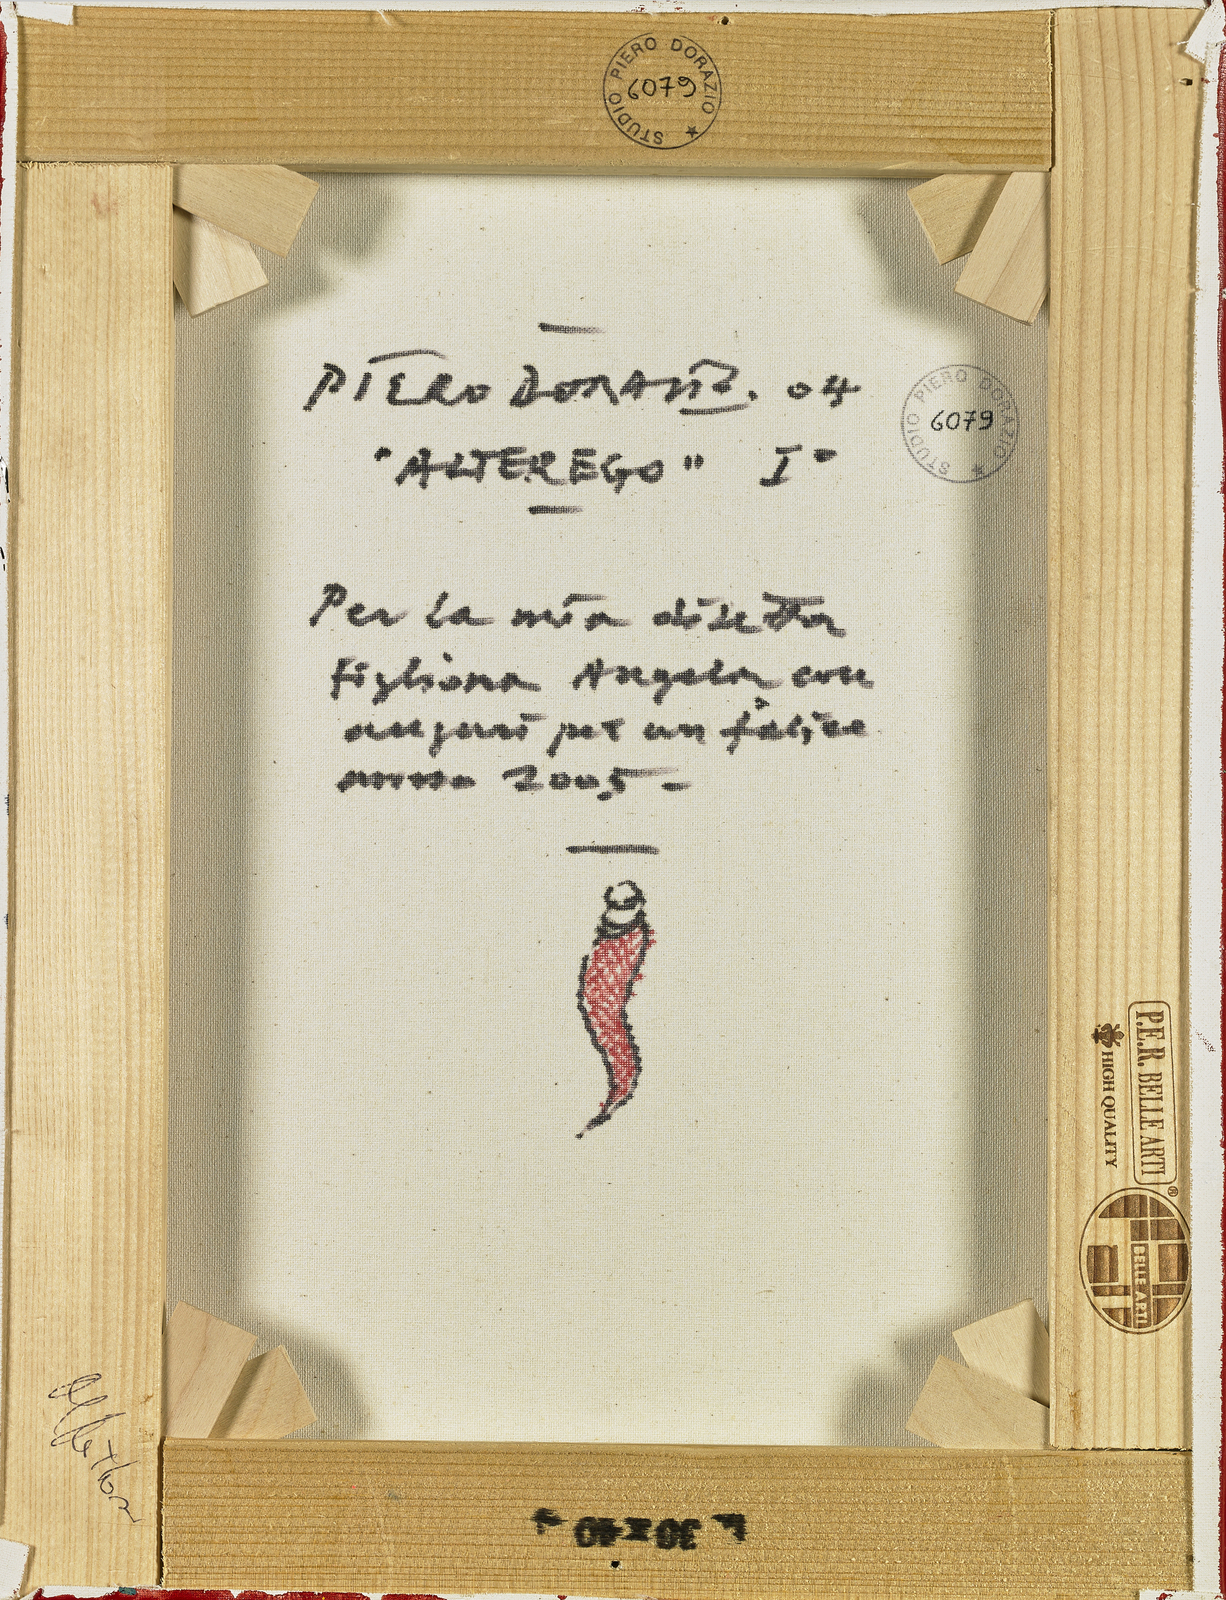 STUDIO PIERO DORAZIO ★
6079
PIERO DORAZIO. 04
"ALTEREGO" I°
STUDIO PIERO DORAZIO ★
6079
Per la mia diletta
figliona Angela, con
auguri per un felice
anno 2005 -
P.E.R. BELLE ARTI ®
HIGH QUALITY
BELLE ARTI
30x40